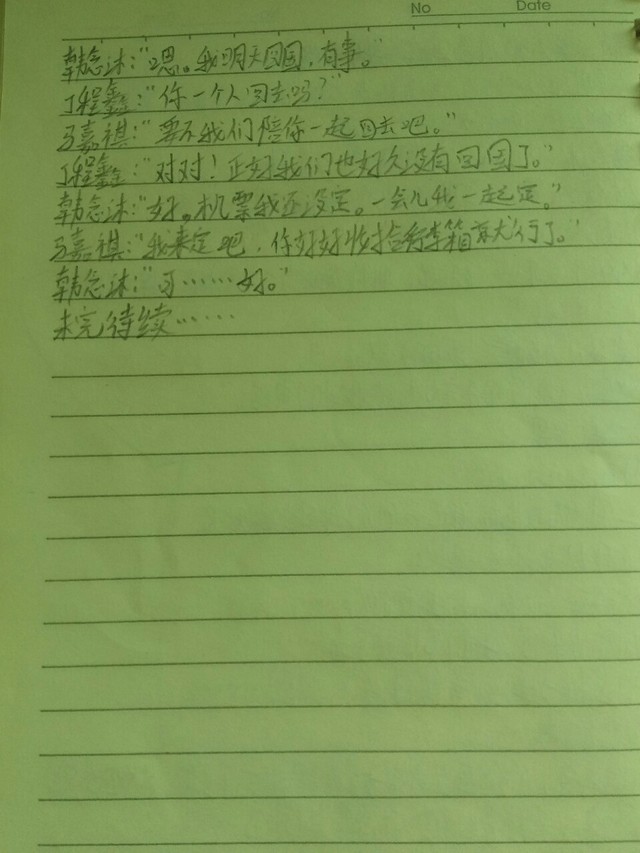 No Date
韩念沐：“嗯。我明天回国，有事。”
丁程鑫：“你一个人回去吗？”
马嘉祺：“要不我们陪你一起回去吧。”
丁程鑫：“对对！正好我们也好久没有回国了。”
韩念沐：“好。机票我还没定。一会儿我一起定。”
马嘉祺：“我来定吧，你好好收拾行李箱就行了。”
韩念沐：“可……好。”
未完待续……